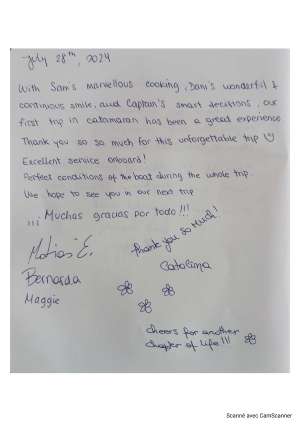 July 28th, 2024
With Sam's marvellous cooking, Dani's wonderful &
continious smile, and Captain's smart decitions, our
first trip in catamaran has been a great experience
Thank you so so much for this unforgettable trip
Excellent service onboard!
Perfect conditions of the boat during the whole trip.
We hope to see you in our next trip
¡¡¡ Muchas gracias por todo!!!
Matias E.
Thank you so much!
Bernarda
Catalina
Maggie
cheers for another
chapter of life!!!
Scanné avec CamScanner